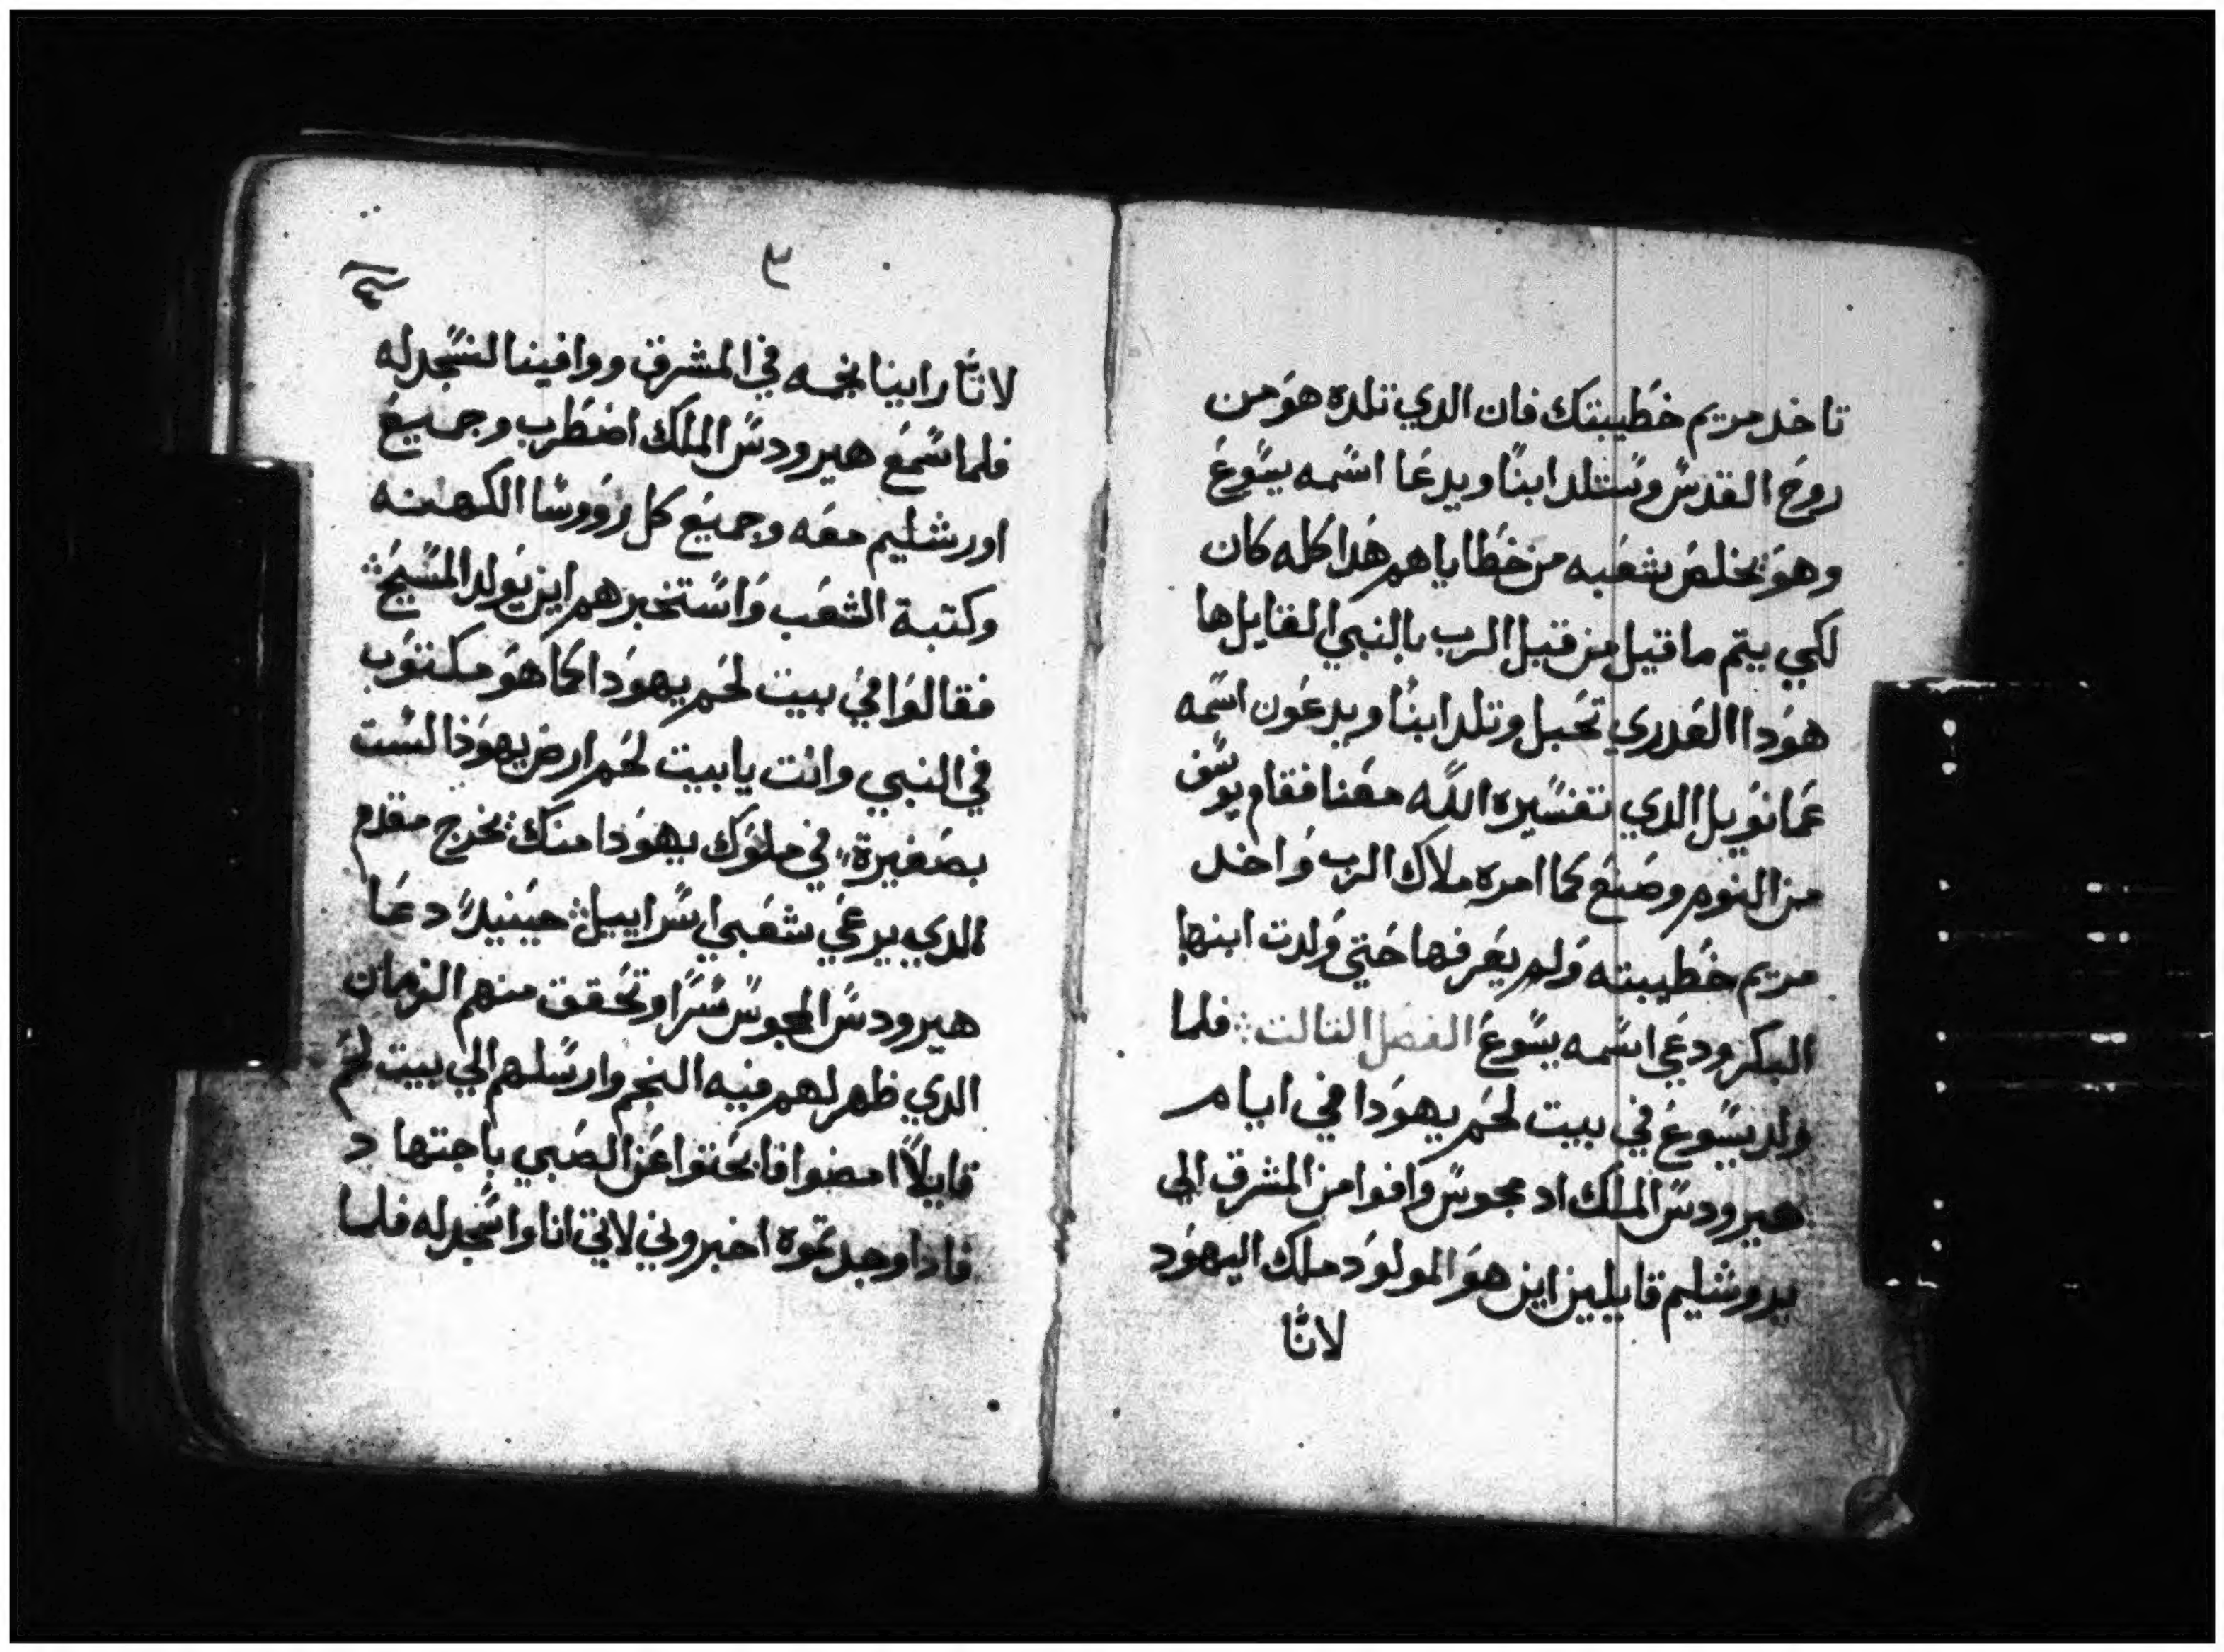 تاخد مريم خطيبتك فان الدي تلده هو من
روح القدس وستلد ابنًا ويدعا اسمه يسوع
وهو يخلص شعبه من خطاياهم هدا كله كان
لكي يتم ما قيل من قبل الرب بالنبي القايل ها
هودا العدري تحبل وتلد ابنًا ويدعون اسمه
عمانويل الدي تفسيره الله معنا فقام يوسف
من النوم وصنع كما امره ملاك الرب واخد
مريم خطيبته ولم يعرفها حتي ولدت ابنها
البكر ودعي اسمه يسوع الفصل التالت ∴ فلما
ولد يسوع في بيت لحم يهودا في ايام
هيرودس الملك اد مجوس وافوا من المشرق الي
يروشليم قايلين اين هو المولود ملك اليهود
لانّا
٣
لانّا راينا نجمه في المشرق ووافينا لنسجد له
فلما سمع هيرودس الملك اضطرب وجميع
اورشليم معه وجميع كل رووسا الكهنه
وكتبة الشعب واستخبرهم اين يولد المسيح ∴
فقالوا في بيت لحم يهودا كما هو مكتوب
في النبي وانت يا بيت لحم ارض يهوذا لست
بصغيرة في ملوك يهودا منك يخرج مقدم
الدي يرعي شعبي اسراييل ∴ حينيدً دعا
هيرودس المجوس سرًا وتحقق منهم الزمان
الدي ظهر لهم فيه النجم وارسلهم الي بيت لحم
قايلاً امضوا فابحتوا عن الصبي باجتهاد
فادا وجدتموه اخبروني لاتي انا واسجد له فلما